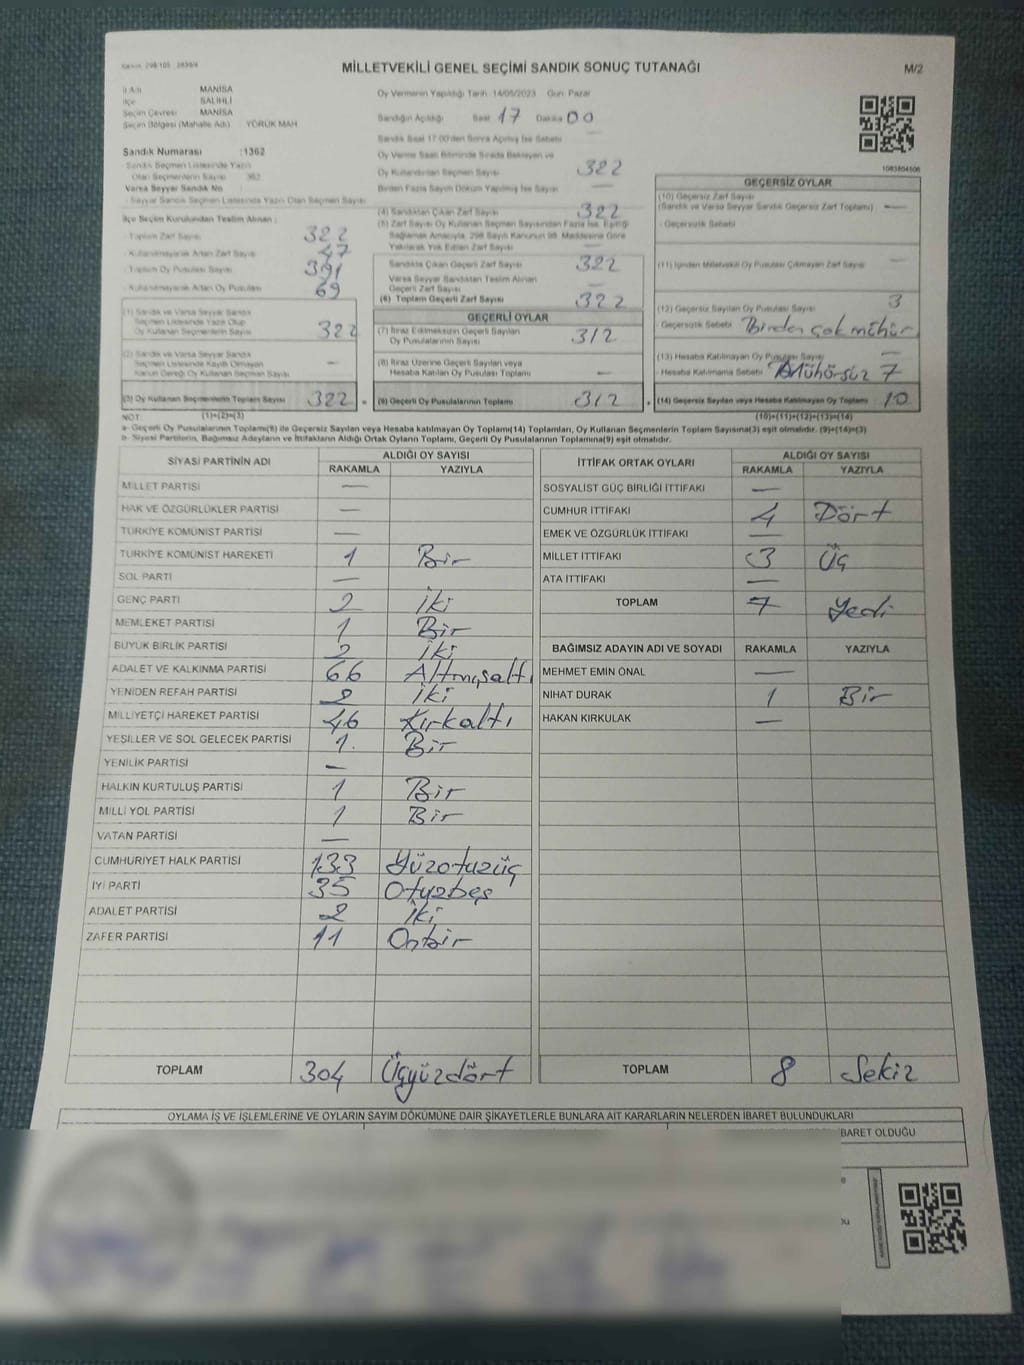 MİLLETVEKİLİ GENEL SEÇİMİ SANDIK SONUÇ TUTANAĞI
M/2
İl Adı MANİSA
İlçe SALİHLİ
Seçim Çevresi MANİSA
Seçim Bölgesi (Mahalle Adı) YÖRÜK MAH
Sandık Numarası :1362
- Sandık Seçmen Listesinde Yazılı
Olan Seçmenlerin Sayısı 362
Varsa Seyyar Sandık No
- Seyyar Sandık Seçmen Listesinde Yazılı Olan Seçmen Sayısı
İlçe Seçim Kurulundan Teslim Alınan :
- Toplam Zarf Sayısı 322
- Kullanılmayarak Artan Zarf Sayısı 47
- Toplam Oy Pusulası Sayısı 391
- Kullanılmayarak Artan Oy Pusulası 69
(1) Sandık ve Varsa Seyyar Sandık
Seçmen Listesinde Yazılı Olup
Oy Kullanan Seçmenlerin Sayısı 322
(2) Sandık ve Varsa Seyyar Sandık
Seçmen Listesinde Kayıtlı Olmayan
Kanun Gereği Oy Kullanan Seçmen Sayısı —
(3) Oy Kullanan Seçmenlerin Toplam Sayısı 322
(1)+(2)=(3)
Oy Vermenin Yapıldığı Tarih: 14/05/2023 Gün: Pazar
Sandığın Açıldığı Saat 17 Dakika 00
Sandık Saat 17:00'den Sonra Açılmış İse Sebebi —
Oy Verme Saati Bitiminde Sırada Bekleyen ve
Oy Kullandırılan Seçmen Sayısı 322
Birden Fazla Sayım Döküm Yapılmış İse Sayısı —
(4) Sandıktan Çıkan Zarf Sayısı 322
(5) Zarf Sayısı Oy Kullanan Seçmen Sayısından Fazla İse, Eşitliği
Sağlamak Amacıyla, 298 Sayılı Kanunun 98. Maddesine Göre
Yakılarak Yok Edilen Zarf Sayısı —
Sandıkta Çıkan Geçerli Zarf Sayısı 322
Varsa Seyyar Sandıktan Teslim Alınan
Geçerli Zarf Sayısı —
(6) Toplam Geçerli Zarf Sayısı 322
GEÇERLİ OYLAR
(7) İtiraz Edilmeksizin Geçerli Sayılan
Oy Pusulalarının Sayısı 312
(8) İtiraz Üzerine Geçerli Sayılan veya
Hesaba Katılan Oy Pusulası Toplamı —
= (9) Geçerli Oy Pusulalarının Toplamı 312
1083804506
GEÇERSİZ OYLAR
(10) Geçersiz Zarf Sayısı
(Sandık ve Varsa Seyyar Sandık Geçersiz Zarf Toplamı) —
- Geçersizlik Sebebi
(11) İçinden Milletvekili Oy Pusulası Çıkmayan Zarf Sayısı —
(12) Geçersiz Sayılan Oy Pusulası Sayısı 3
- Geçersizlik Sebebi Birden çok mühür
(13) Hesaba Katılmayan Oy Pusulası Sayısı —
- Hesaba Katılmama Sebebi Mühürsüz 7
+ (14) Geçersiz Sayılan veya Hesaba Katılmayan Oy Toplamı 10
(10)+(11)+(12)+(13)=(14)
NOT:
a- Geçerli Oy Pusulalarının Toplamı(9) ile Geçersiz Sayılan veya Hesaba katılmayan Oy Toplamı(14) Toplamları, Oy Kullanan Seçmenlerin Toplam Sayısına(3) eşit olmalıdır. (9)+(14)=(3)
b- Siyasi Partilerin, Bağımsız Adayların ve İttifakların Aldığı Ortak Oyların Toplamı, Geçerli Oy Pusulalarının Toplamına(9) eşit olmalıdır.
SİYASİ PARTİNİN ADI ALDIĞI OY SAYISI
RAKAMLA YAZIYLA
MİLLET PARTİSİ —
HAK VE ÖZGÜRLÜKLER PARTİSİ —
TÜRKİYE KOMÜNİST PARTİSİ —
TÜRKİYE KOMÜNİST HAREKETİ 1 Bir
SOL PARTİ —
GENÇ PARTİ 2 İki
MEMLEKET PARTİSİ 1 Bir
BÜYÜK BİRLİK PARTİSİ 2 İki
ADALET VE KALKINMA PARTİSİ 66 Altmışaltı
YENİDEN REFAH PARTİSİ 2 İki
MİLLİYETÇİ HAREKET PARTİSİ 46 Kırkaltı
YEŞİLLER VE SOL GELECEK PARTİSİ 1. Bir
YENİLİK PARTİSİ —
HALKIN KURTULUŞ PARTİSİ 1 Bir
MİLLİ YOL PARTİSİ 1 Bir
VATAN PARTİSİ —
CUMHURİYET HALK PARTİSİ 133 Yüzotuzüç
İYİ PARTİ 35 Otuzbeş
ADALET PARTİSİ 2 İki
ZAFER PARTİSİ 11 Onbir
TOPLAM 304 Üçyüzdört
İTTİFAK ORTAK OYLARI ALDIĞI OY SAYISI
RAKAMLA YAZIYLA
SOSYALİST GÜÇ BİRLİĞİ İTTİFAKI —
CUMHUR İTTİFAKI 4 Dört
EMEK VE ÖZGÜRLÜK İTTİFAKI —
MİLLET İTTİFAKI 3 Üç
ATA İTTİFAKI —
TOPLAM 7 Yedi
BAĞIMSIZ ADAYIN ADI VE SOYADI RAKAMLA YAZIYLA
MEHMET EMİN ÖNAL —
NİHAT DURAK 1 Bir
HAKAN KIRKULAK —
TOPLAM 8 Sekiz
OYLAMA İŞ VE İŞLEMLERİNE VE OYLARIN SAYIM DÖKÜMÜNE DAİR ŞİKAYETLERLE BUNLARA AİT KARARLARIN NELERDEN İBARET BULUNDUKLARI
BARET OLDUĞU